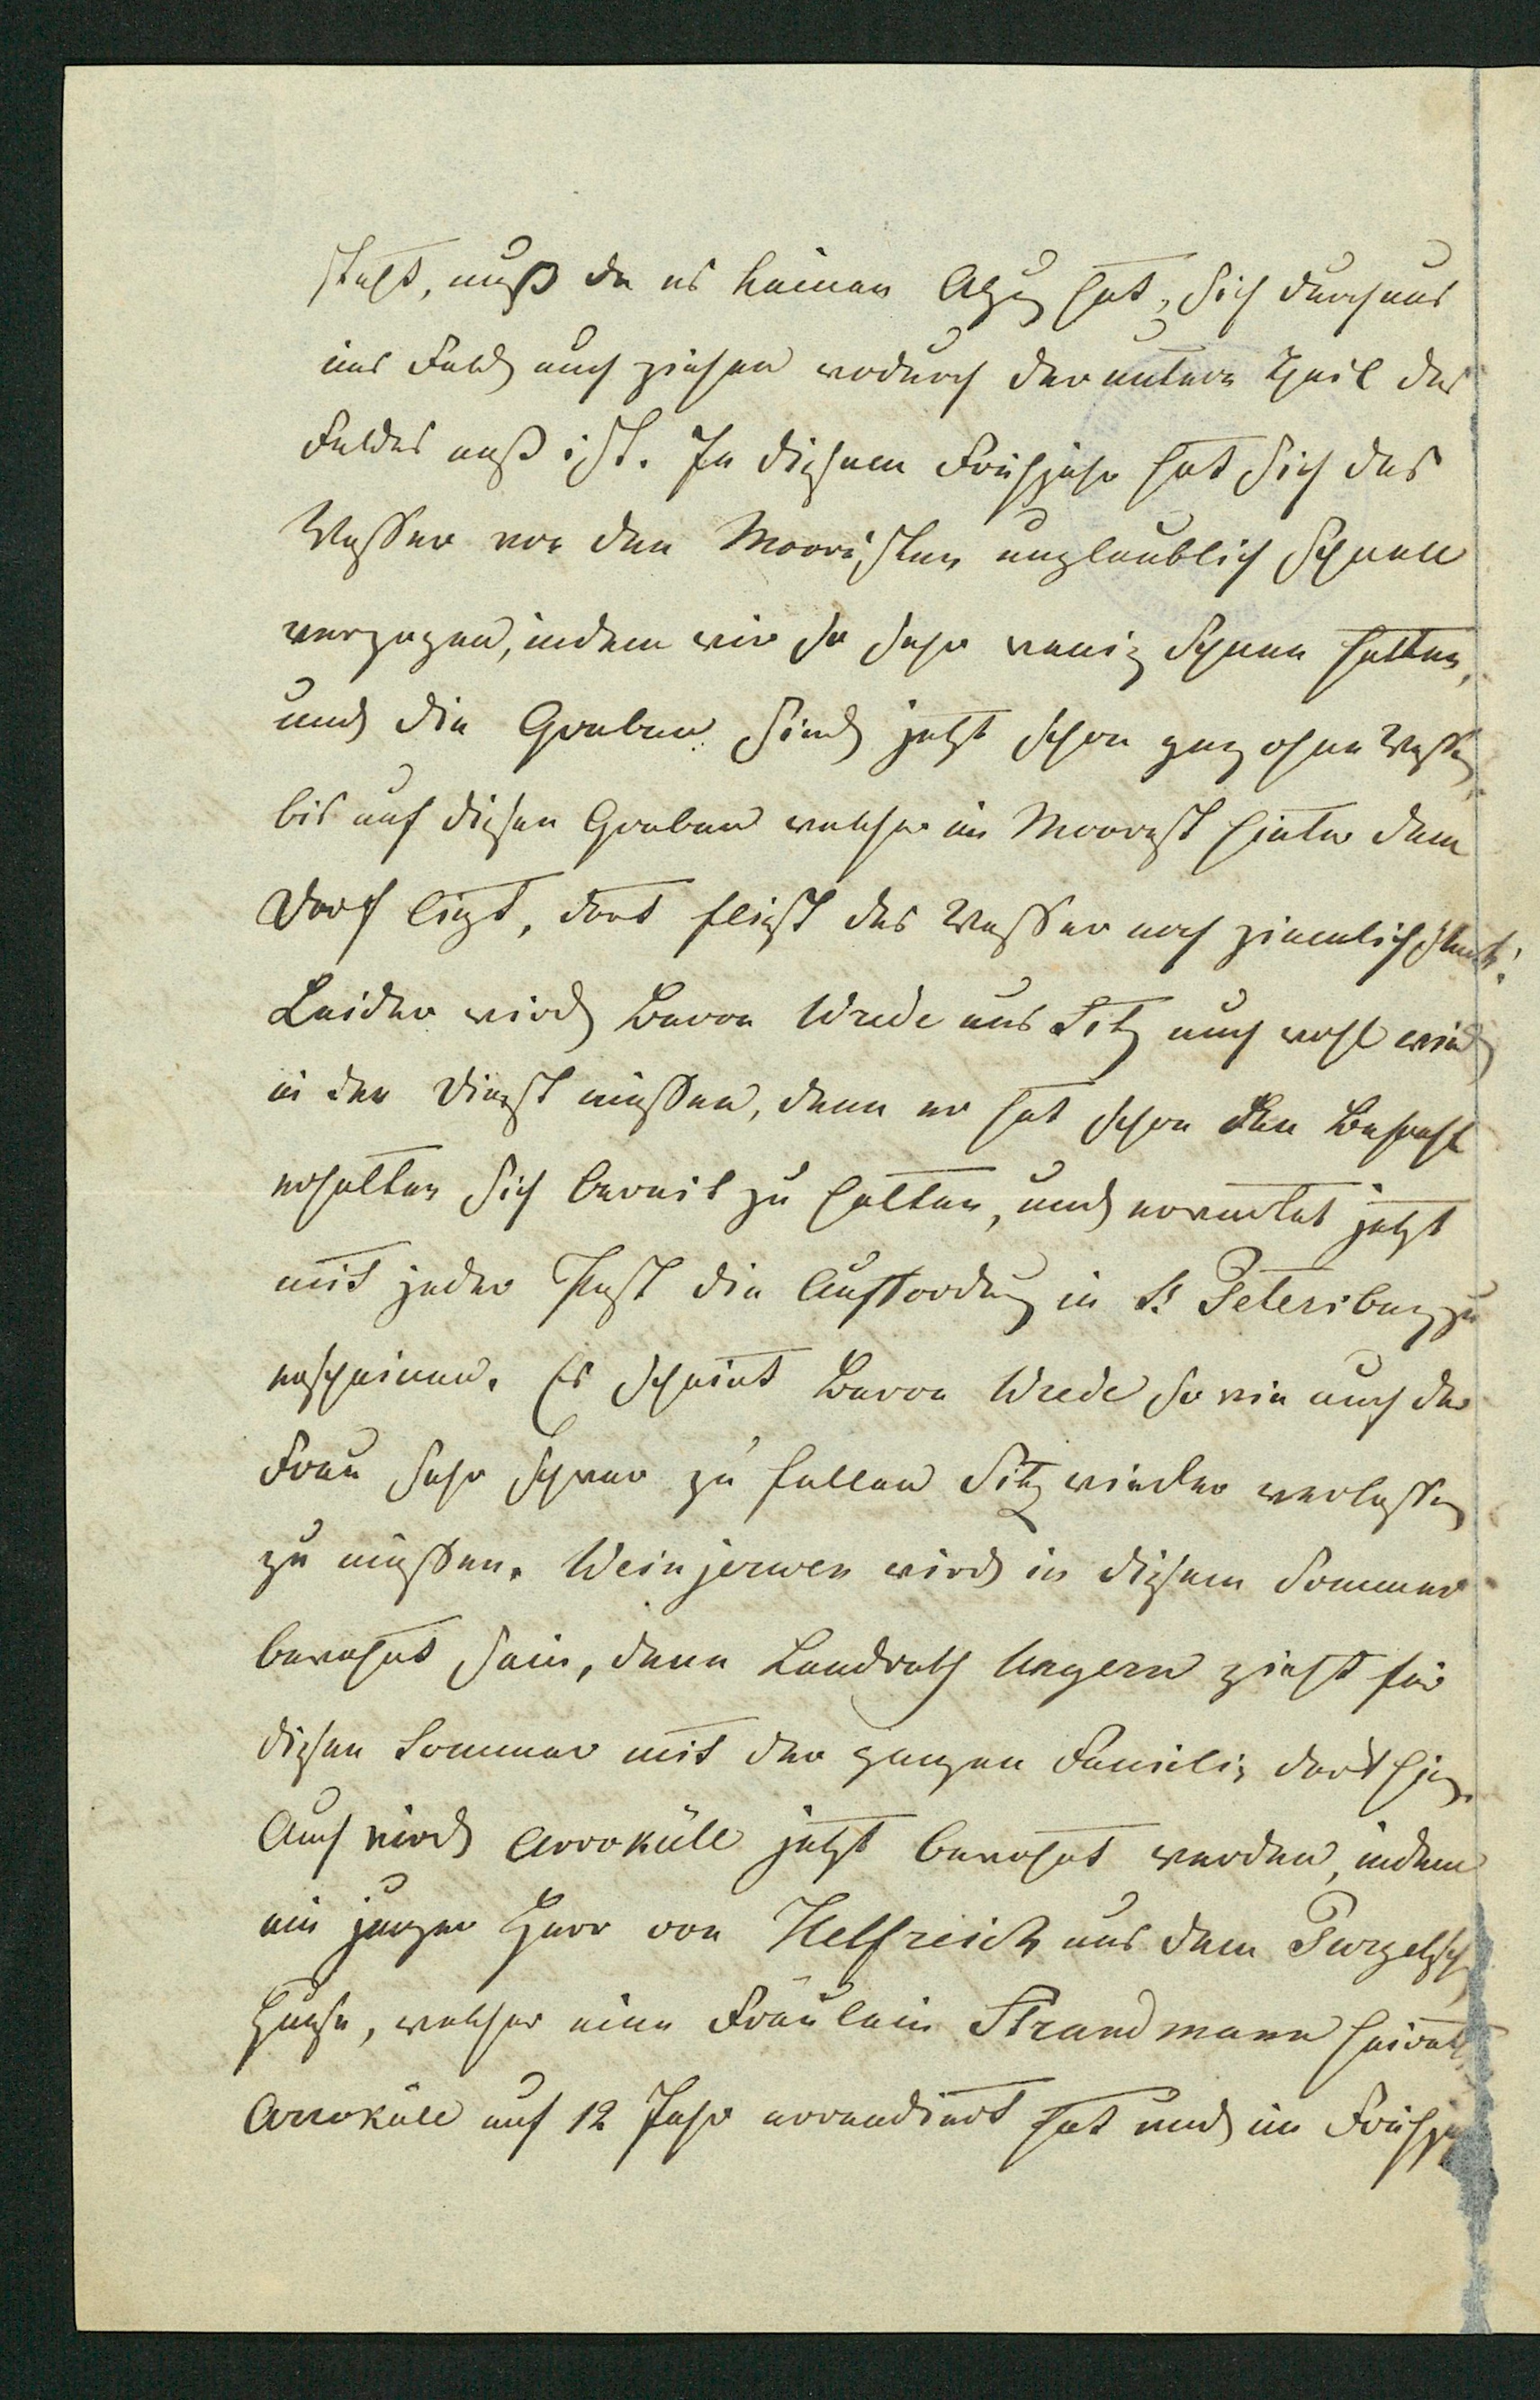 steht, muß da es keinen Abzug hat, sich durchaus
ins Feld auch ziehen wodurch der untere Theil des
Feldes naß ist. In diesem Frühjahr hat sich das
Wasser von den Moorästen unglaublich schnell
verzogen, indem wir so sehr wenig Schnee hatten,
und die Graben sind jetzt schon ganz ohne Wasser
bis auf diesen Graben welcher im Moorast hinter dem
Dorf liegt, dort fließt das Wasser noch ziemlich stark.
Leider wird Baron Wrede aus Sitz auch wohl wied
in den Dienst müssen, denn er hat schon den Befehl
erhalten sich bereit zu halten, und erwartet jetzt
mit jeder Post die Aufforderung in St Petersburg zu
erscheinen. Es scheint Baron Wrede so wie auch der
Frau sehr schwer zu fallen Sitz wieder verlassen
zu müssen. Weinjerwen wird in diesem Sommer
bewohnt sein, denn Landrath Ungern zieht für
diesen Sommer mit der ganzen Familie dort hin.
Auch wird Arroküll jetzt bewohnt werden, indem
ein junger Herr von Helfreich aus dem Purgelsch
Hause, welcher eine Fräulein Strandmann heirath
Arroküll auf 12 Jahr arrendiert hat und im Frühja